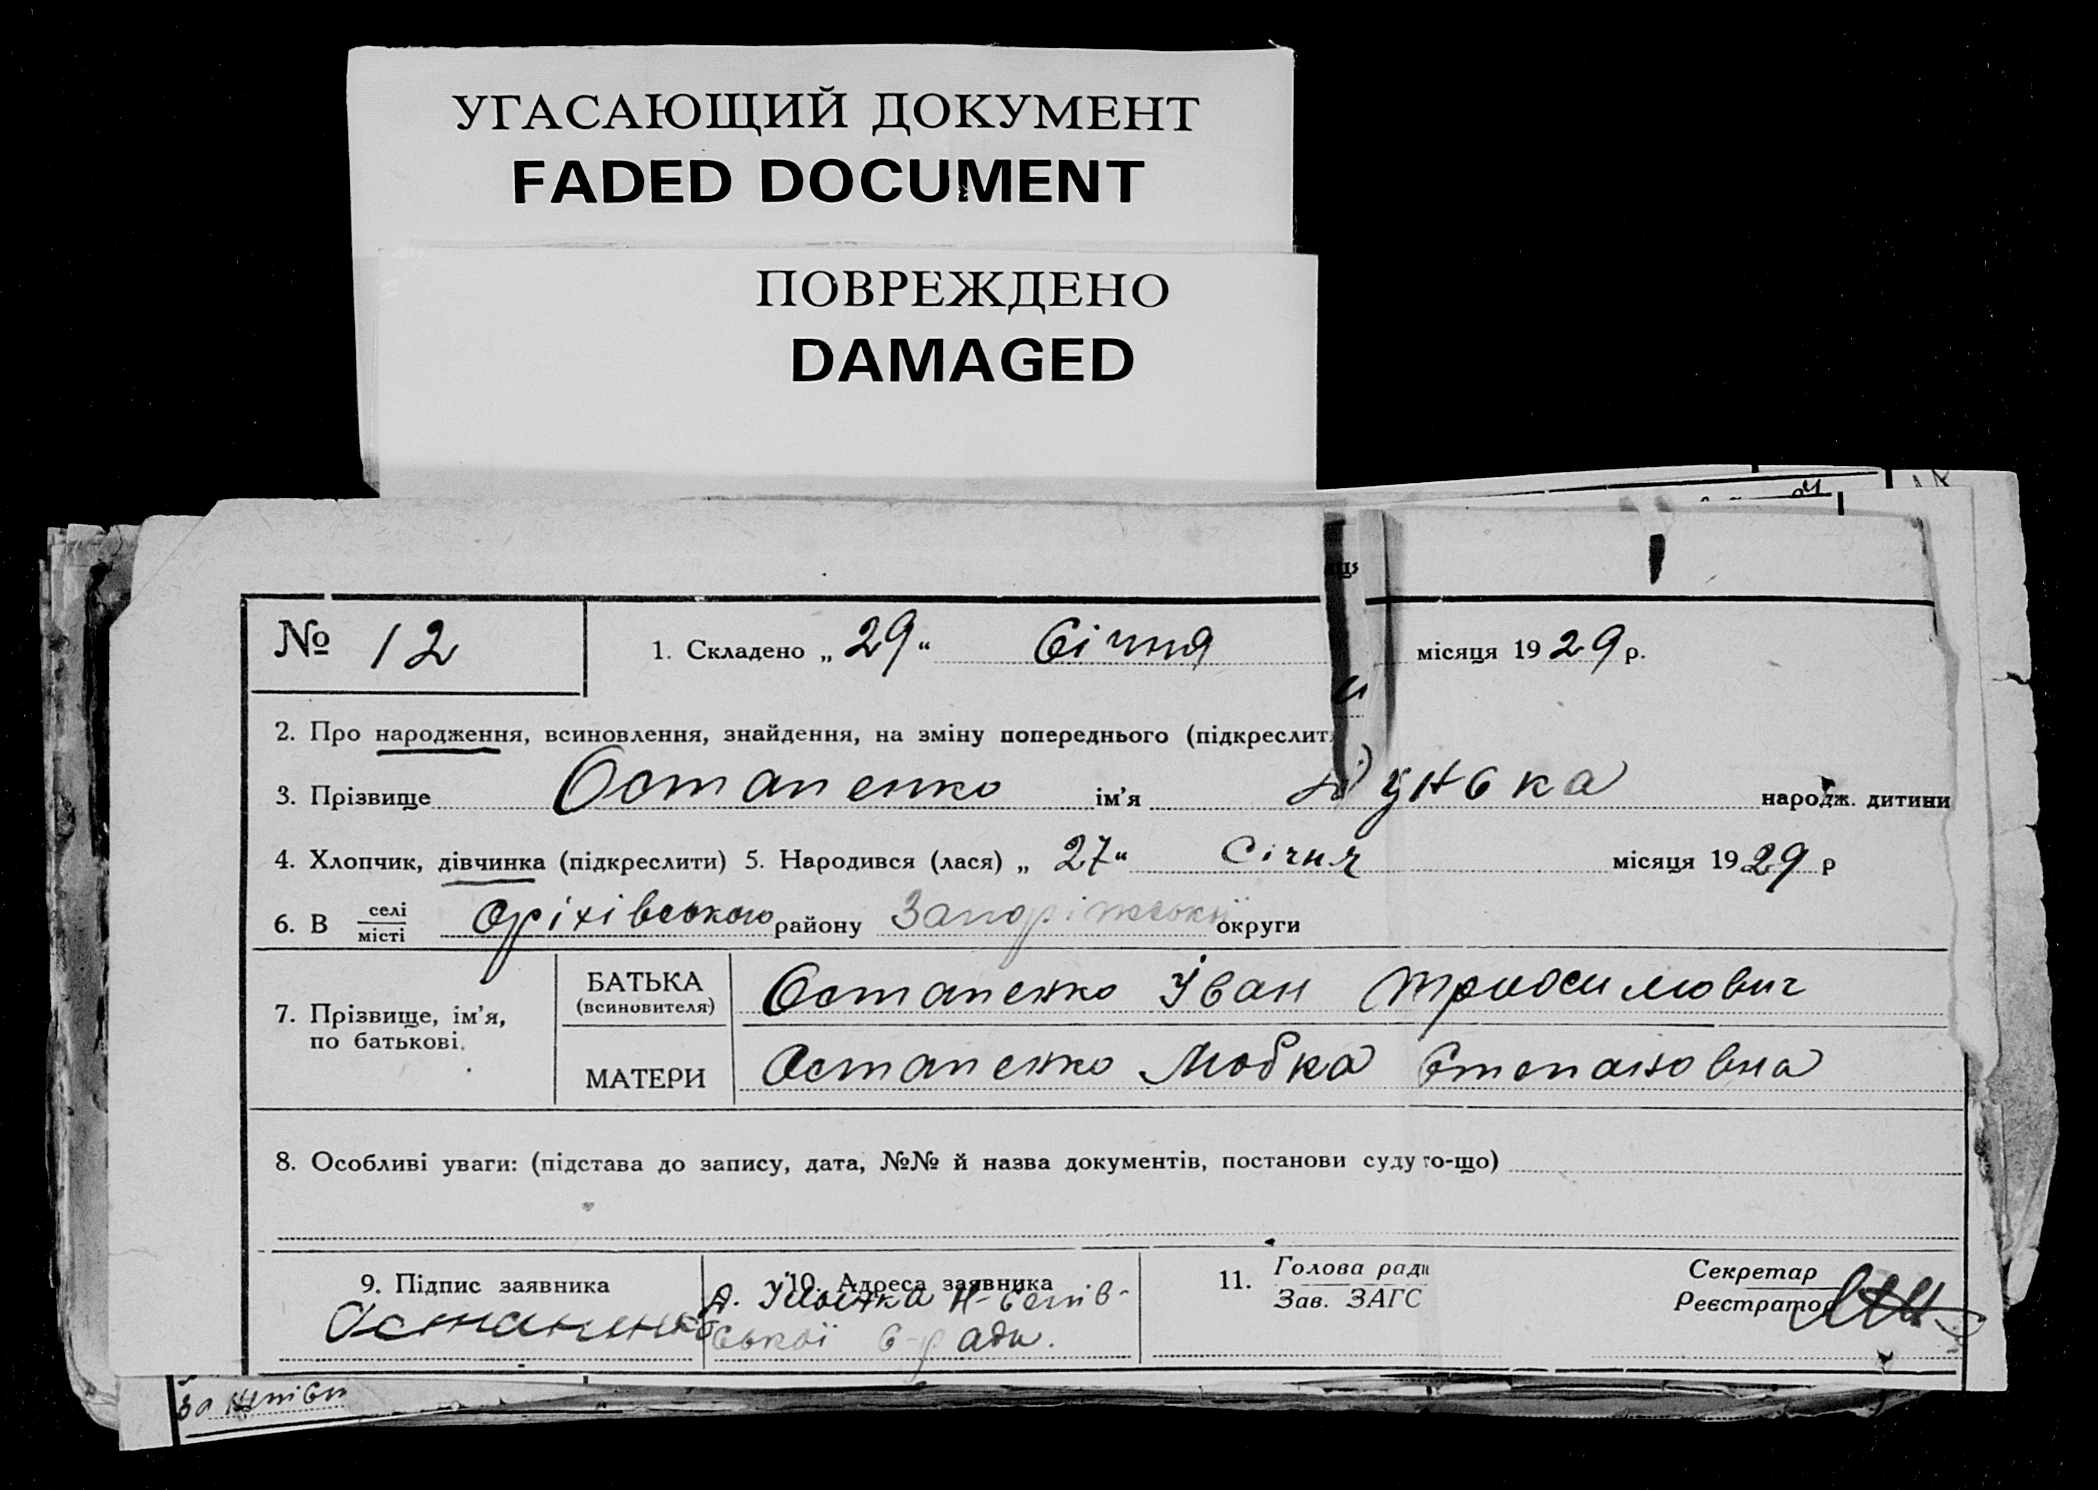 УГАСАЮЩИЙ ДОКУМЕНТ
FADED DOCUMENT
ПОВРЕЖДЕНО
DAMAGED
№ 12
1. Складено „ 29 “ Січня місяця 1929 р.
2. Про народження, всиновлення, знайдення, на зміну попереднього (підкреслит
3. Прізвище Остапенко ім’я Дунька народж. дитини
4. Хлопчик, дівчинка (підкреслити) 5. Народився (лася) „ 27 “ Січня місяця 1929 р
6. В селі місті Оріхівського району Запоріжської округи
7. Прізвище, ім’я, по батькові.
БАТЬКА (всиновителя) Остапенко Іван
МАТЕРИ Остапенко Любка Степановна
8. Особливі уваги: (підстава до запису, дата, №№ й назва документів, постанови суду то-що)
9. Підпис заявника
10. Адреса заявника
ської с-ради.
11. Голова ради
Зав. ЗАГС
Секретар
Реєстратор